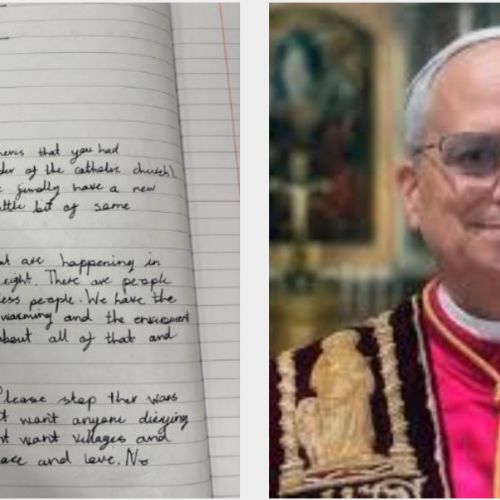 news that you had
der of the catholic church!
finally have a new
ttle bit of some
at are happening in
eight. There are people
less people. We have the
warming and the enviroment
about all of that and
Please stop ther wars
t want anyone dieying
nt want villages and
ace and love. No